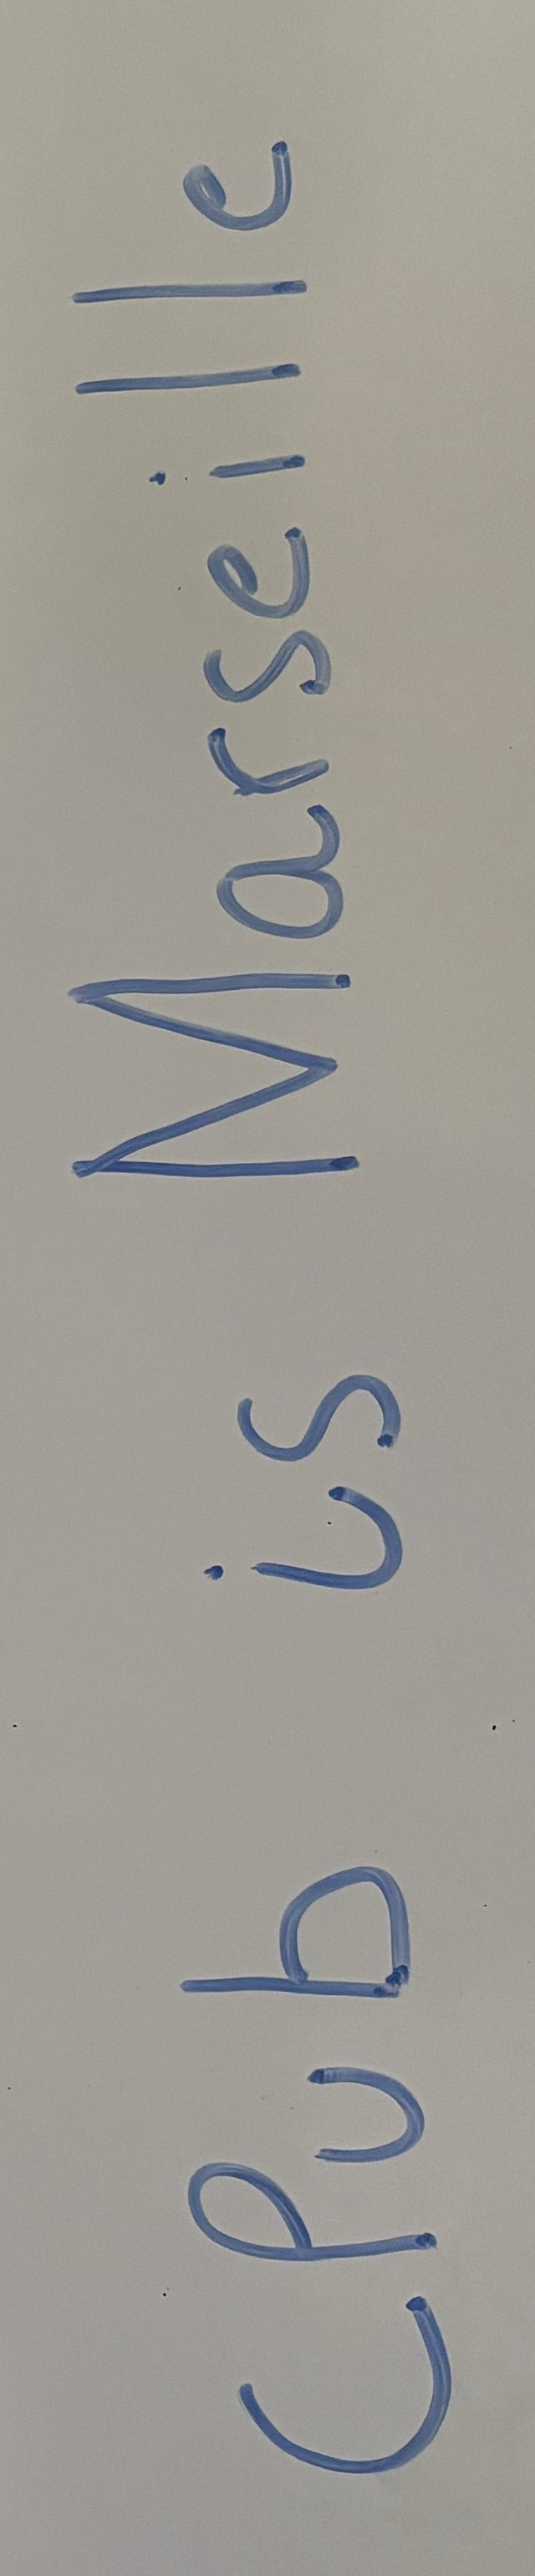 club is Marseille